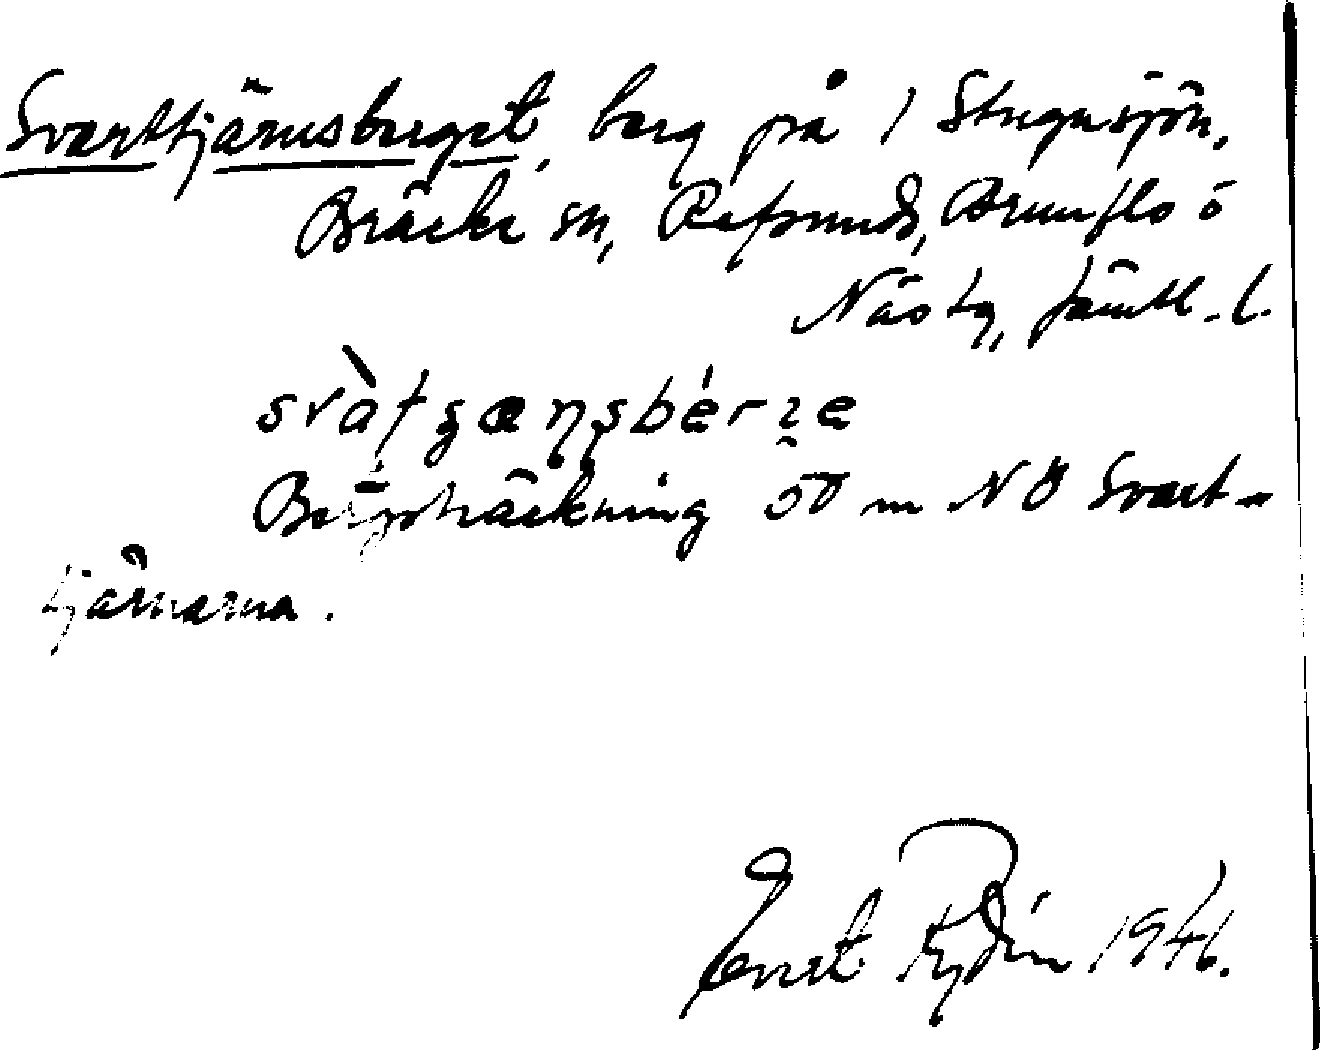 Svarttjärnsberget, berg på 1 Stugusjön,
Bräcke sn, Refsunds, Brunflo o
Näs tg, Jämtl. l.
Bergsträckning 50 m NÖ Svart-
tjärnarna.
Ernst Rydén 1946.